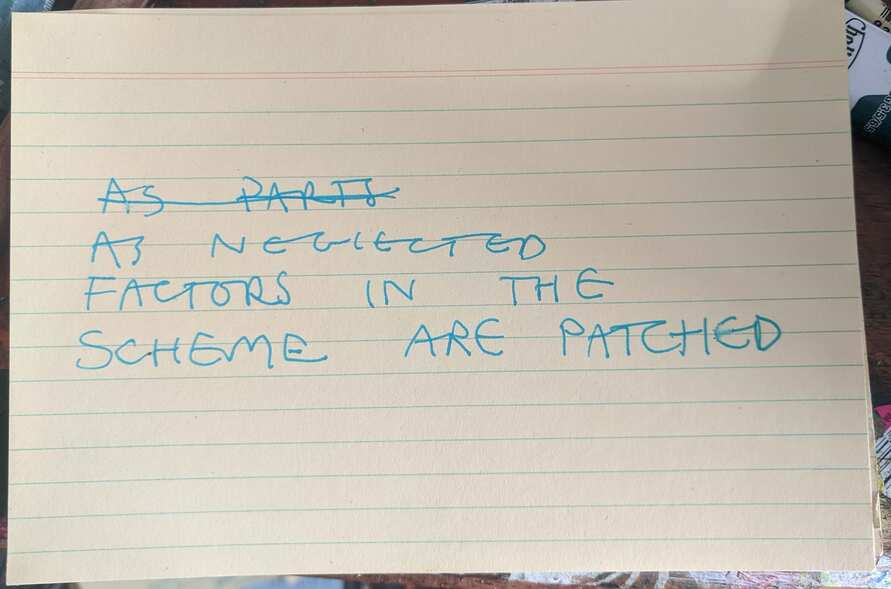 AS PARTS
AS NEGLECTED
FACTORS IN THE
SCHEME ARE PATCHED